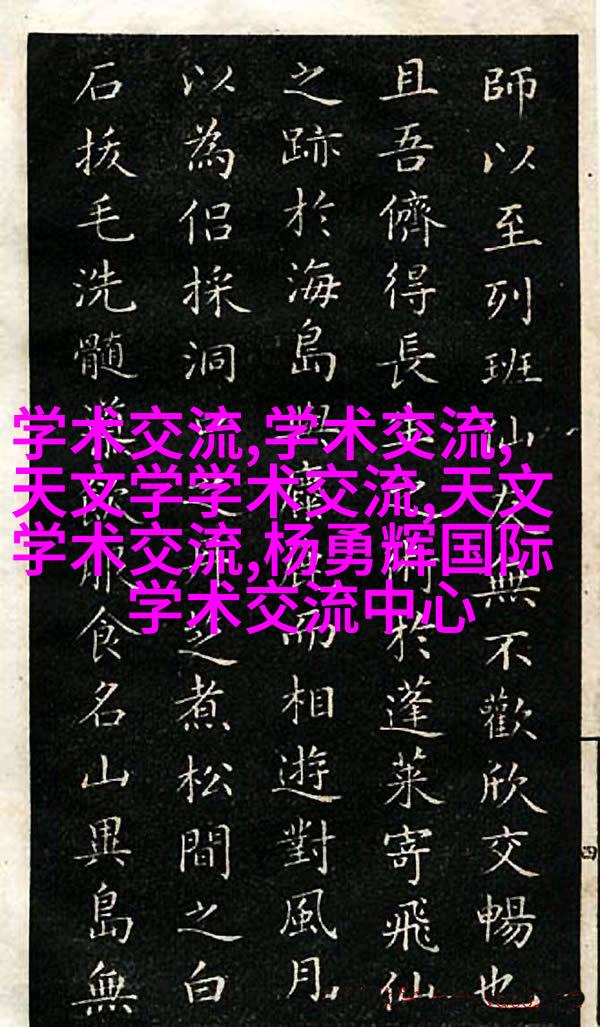 師以至列班仙無不歡欣交暢也
且吾儕得長於蓬萊寄飛仙
之跡於海島而相遊對風月
以為侶採洞芝煮松間之白
石拔毛洗髓食名山異島無
学术交流,学术交流,
天文学学术交流,天文
学术交流,杨勇辉国际
学术交流中心